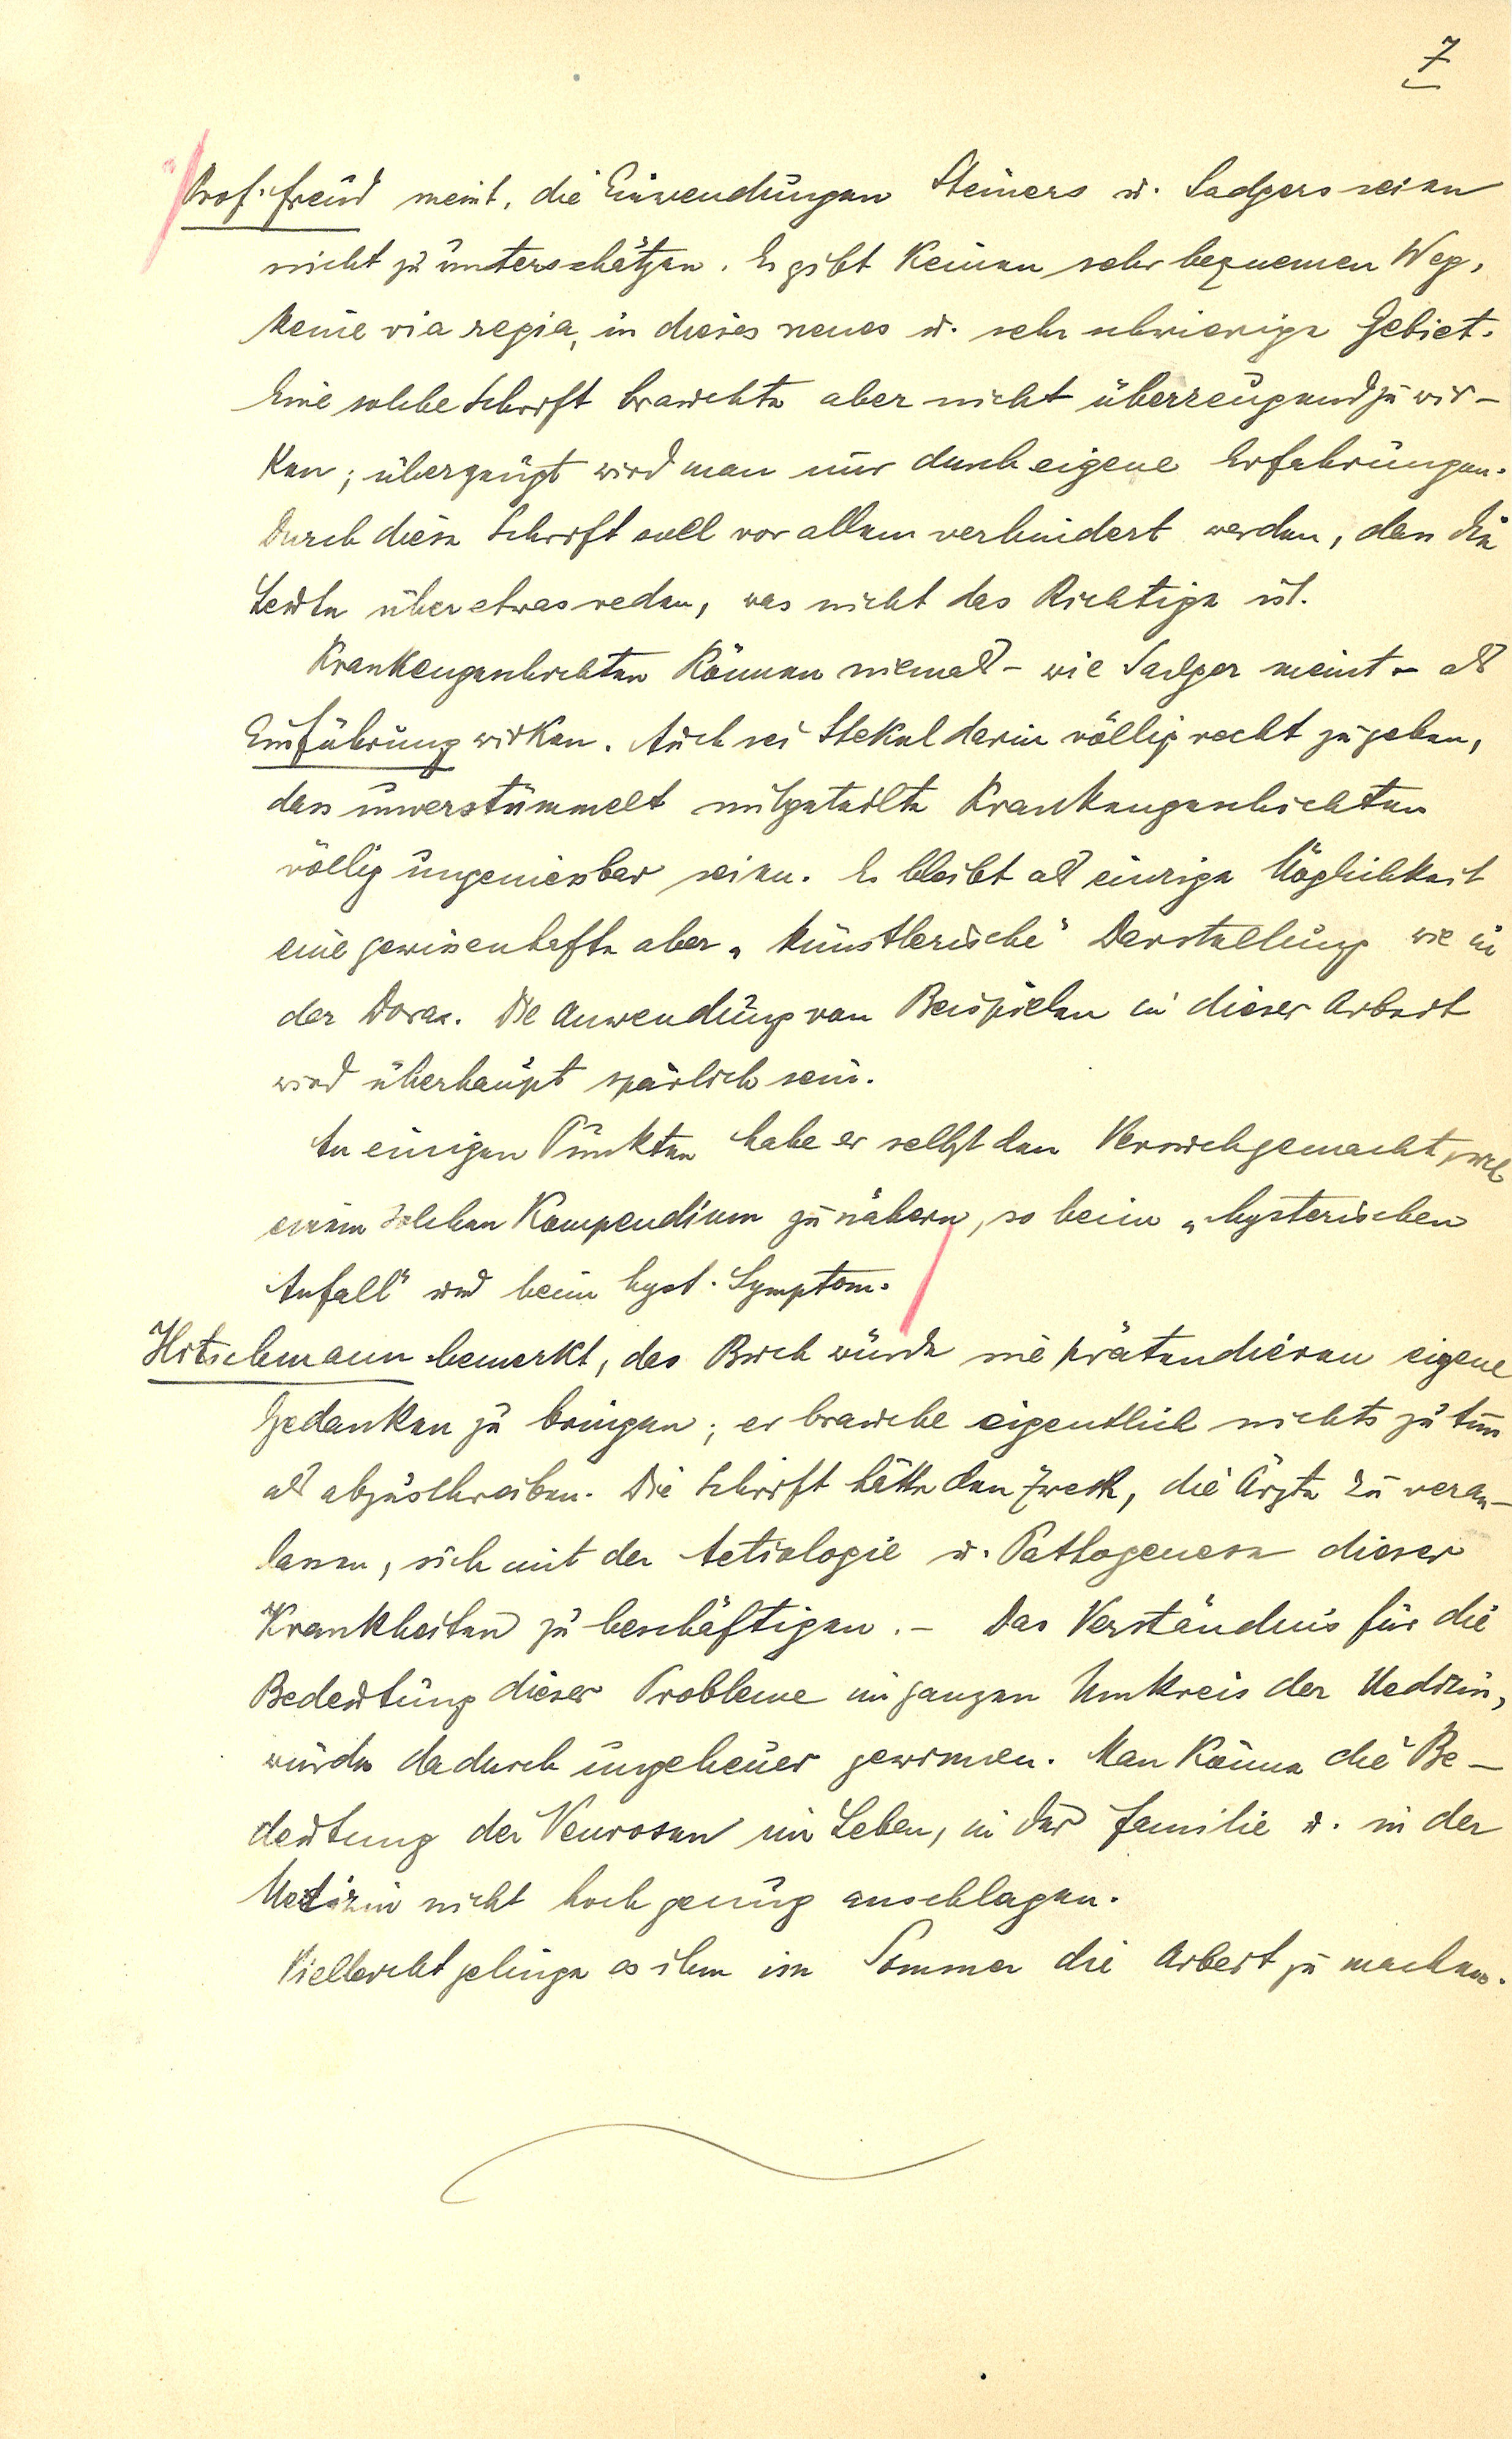 7
Prof. Freud meint, die Einwendungen Steiners u. Sadgers seien
nicht zu unterschätzen. Es gibt keinen sehr bequemen Weg,
keine via regia, in dieses neues u. sehr schwierige Gebiet.
Eine solche Schrift brauchte aber nicht überzeugend zu wir-
ken; überzeugt wird man nur durch eigene Erfahrungen.
Durch diese Schrift soll vor allem verhindert werden, dass die
Leute über etwas reden, was nicht das Richtige ist.
Krankengeschichten können niemals - wie Sadger meint - als
Einführung wirken. Auch sei Stekel darin völlig recht zu geben,
dass unverstümmelt mitgeteilte Krankengeschichten
völlig ungeniessbar seien. Es bleibt als einzige Möglichkeit
eine gewissenhafte aber „künstlerische" Darstellung wie in
der Dora. Die Anwendung von Beispielen in dieser Arbeit
wird überhaupt spärlich sein.
An einigen Punkten habe er selbst den Versuch gemacht, sich
einem solchen Kompendium zu nähern, so beim „hysterischen
Anfall" und beim hyst. Symptom.
Hitschmann bemerkt, das Buch würde nie prätendieren eigene
Gedanken zu bringen; er brauche eigentlich nichts zu tun
als abzuschreiben. Die Schrift hätte den Zweck, die Ärzte zu veran-
lassen, sich mit der Aetiologie u. Pathogenese dieser
Krankheiten zu beschäftigen. - Das Verständnis für die
Bedeutung dieser Probleme im ganzen Umkreis der Medizin,
würde dadurch ungeheuer gewinnen. Man könne die Be-
deutung der Neurosen im Leben, in der Familie u. in der
Medizin nicht hoch genug anschlagen.
Vielleicht gelinge es ihm im Sommer die Arbeit zu machen.